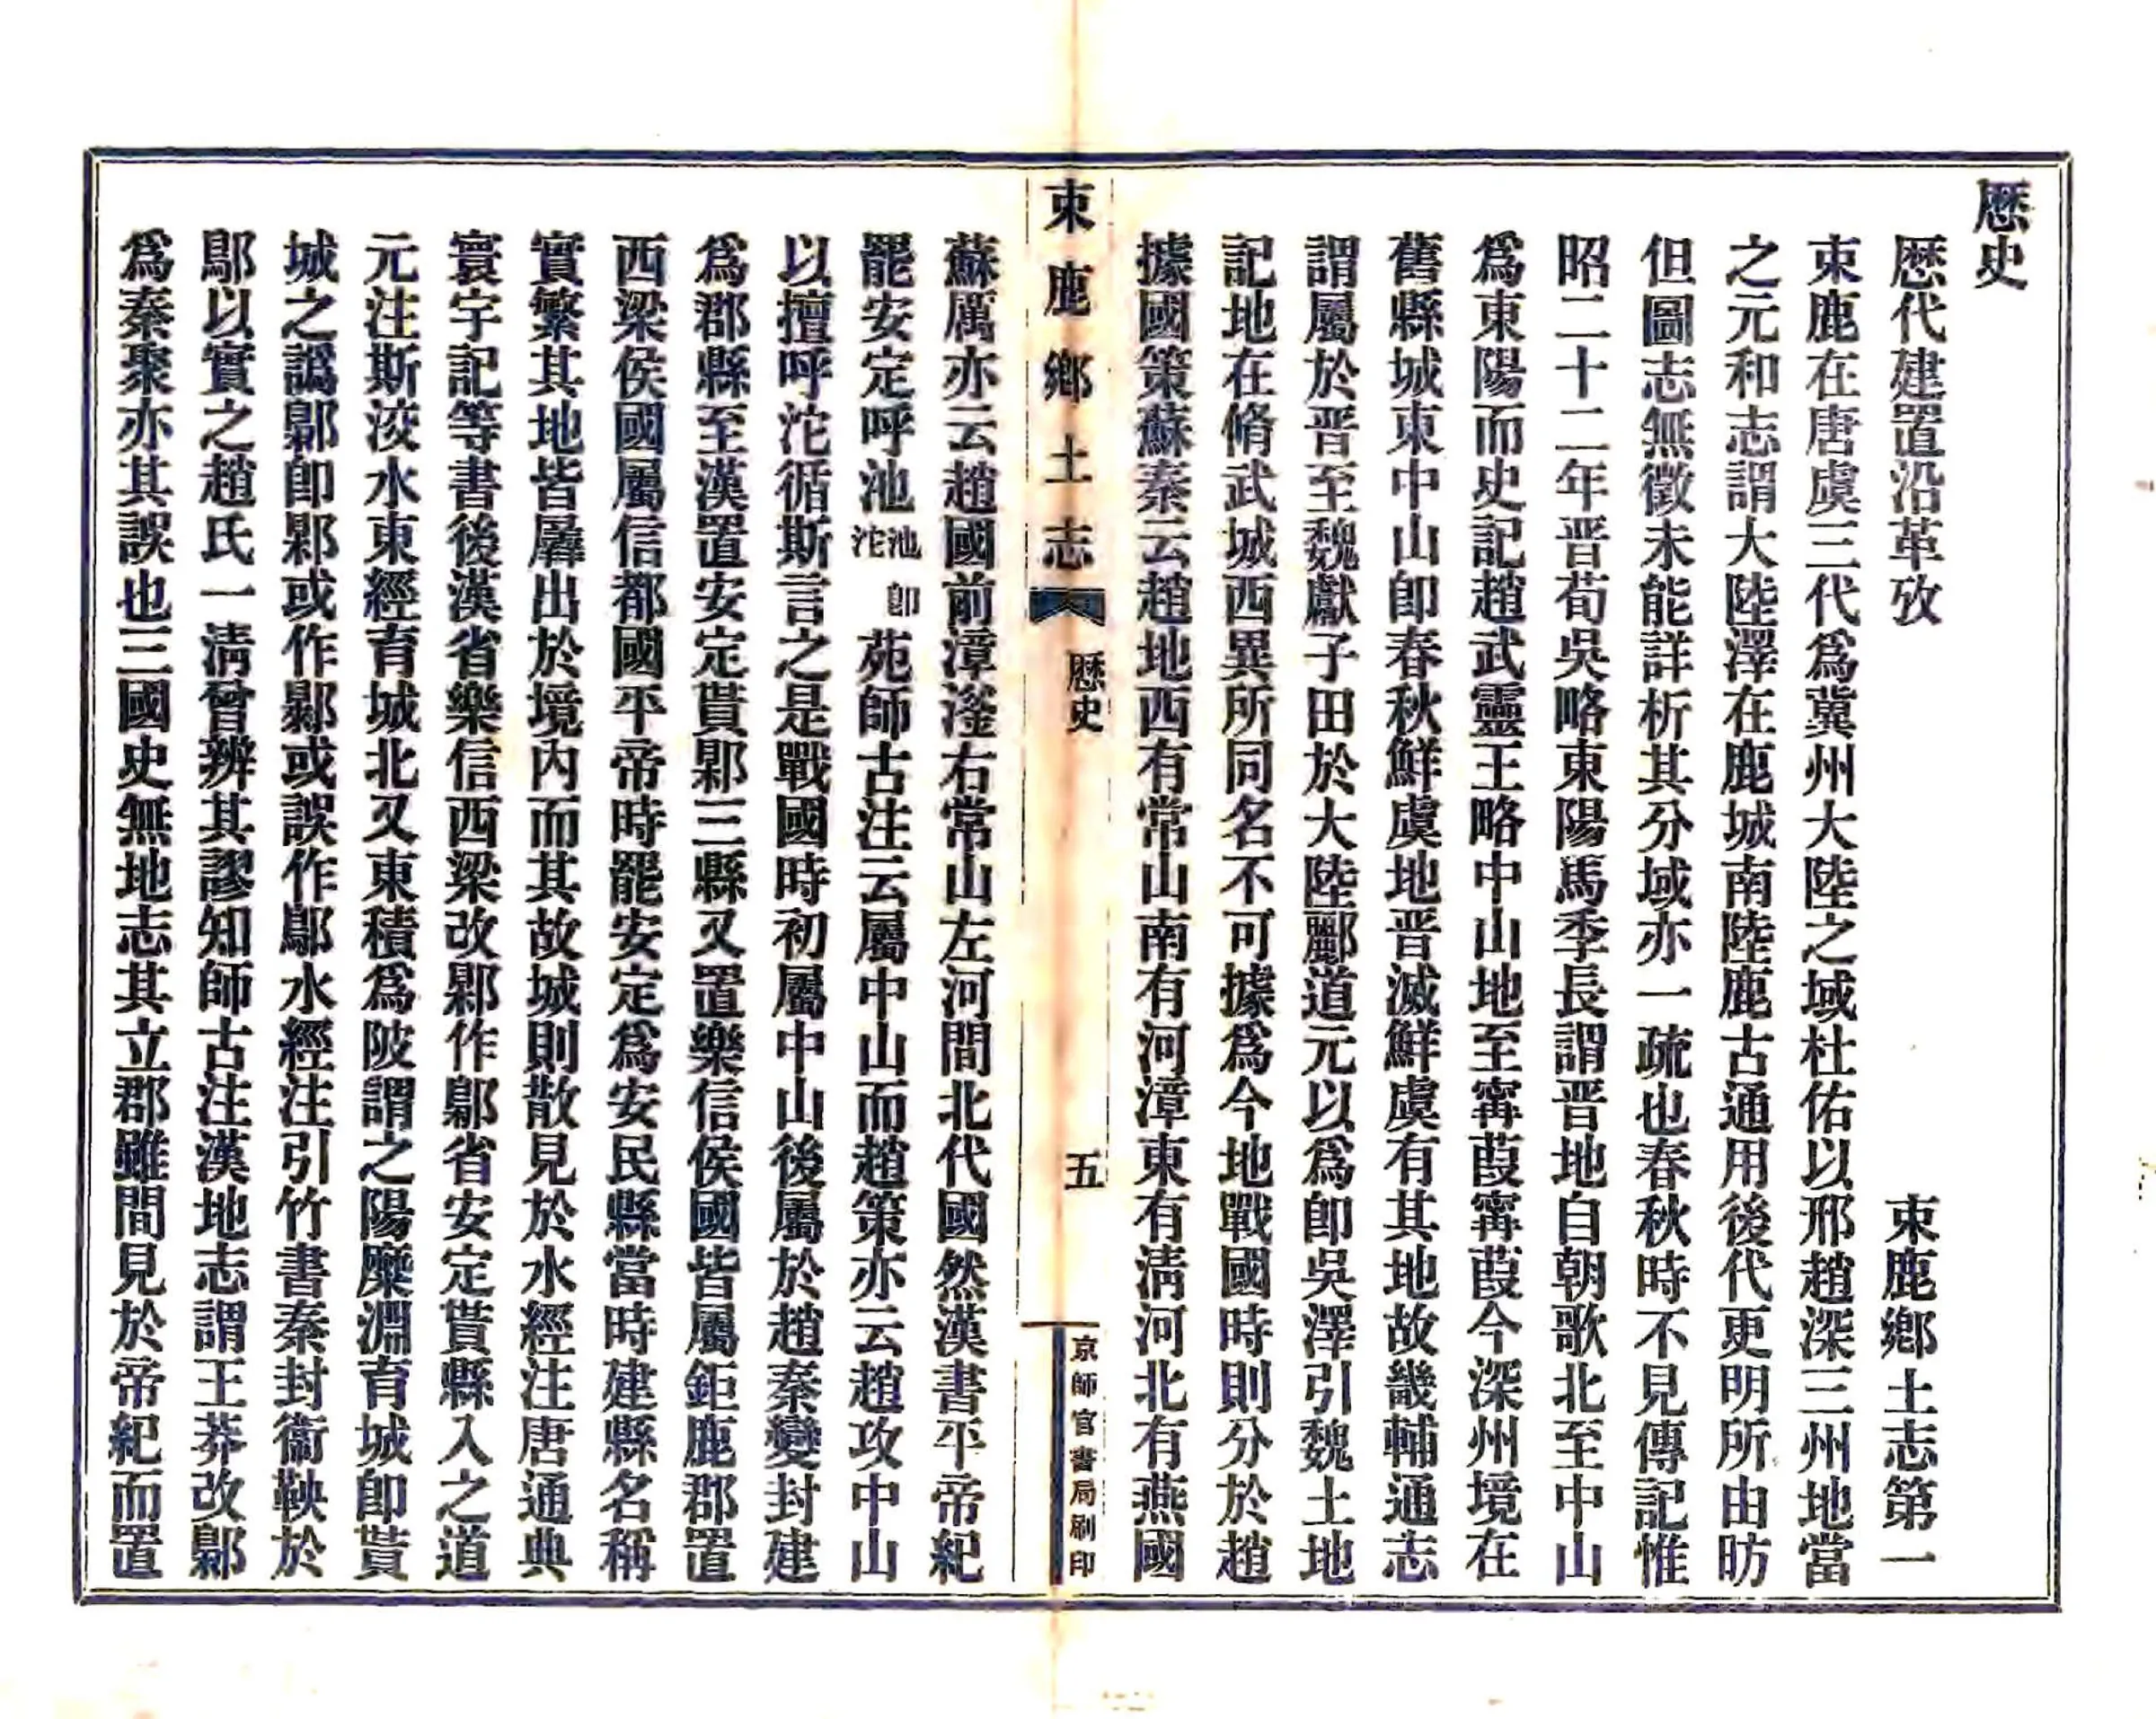 歷史
歷代建置沿革攷
束鹿鄉土志第一
束鹿在唐虞三代爲冀州大陸之域杜佑以邢趙深三州地當
之元和志謂大陸澤在鹿城南陸鹿古通用後代更明所由昉
但圖志無徵未能詳析其分域亦一疏也春秋時不見傳記惟
昭二十二年晋荀吳略東陽馬季長謂晋地自朝歌北至中山
爲東陽而史記趙武靈王略中山地至甯葭甯葭今深州境在
舊縣城東中山卽春秋鮮虞地晋滅鮮虞有其地故畿輔通志
謂屬於晋至魏獻子田於大陸酈道元以爲卽吳澤引魏土地
記地在脩武城西異所同名不可據爲今地戰國時則分於趙
據國策蘇秦云趙地西有常山南有河漳東有淸河北有燕國
束鹿鄉土志
歷史
五
京師官書局刷印
蘇厲亦云趙國前漳滏右常山左河間北代國然漢書平帝紀
罷安定呼池池卽沱苑師古注云屬中山而趙策亦云趙攻中山
以擅呼沱循斯言之是戰國時初屬中山後屬於趙秦變封建
爲郡縣至漢置安定貰鄡三縣又置樂信侯國皆屬鉅鹿郡置
西梁侯國屬信都國平帝時罷安定爲安民縣當時建縣名稱
實繁其地皆羼出於境內而其故城則散見於水經注唐通典
寰宇記等書後漢省樂信西梁改鄡作鄥省安定貰縣入之道
元注斯洨水東經育城北又東積爲陂謂之陽糜淵育城卽貰
城之譌鄥卽鄡或作鄡或誤作鄔水經注引竹書秦封衞鞅於
鄔以實之趙氏一淸曾辨其謬知師古注漢地志謂王莽改鄡
爲秦聚亦其誤也三國史無地志其立郡雖間見於帝紀而置